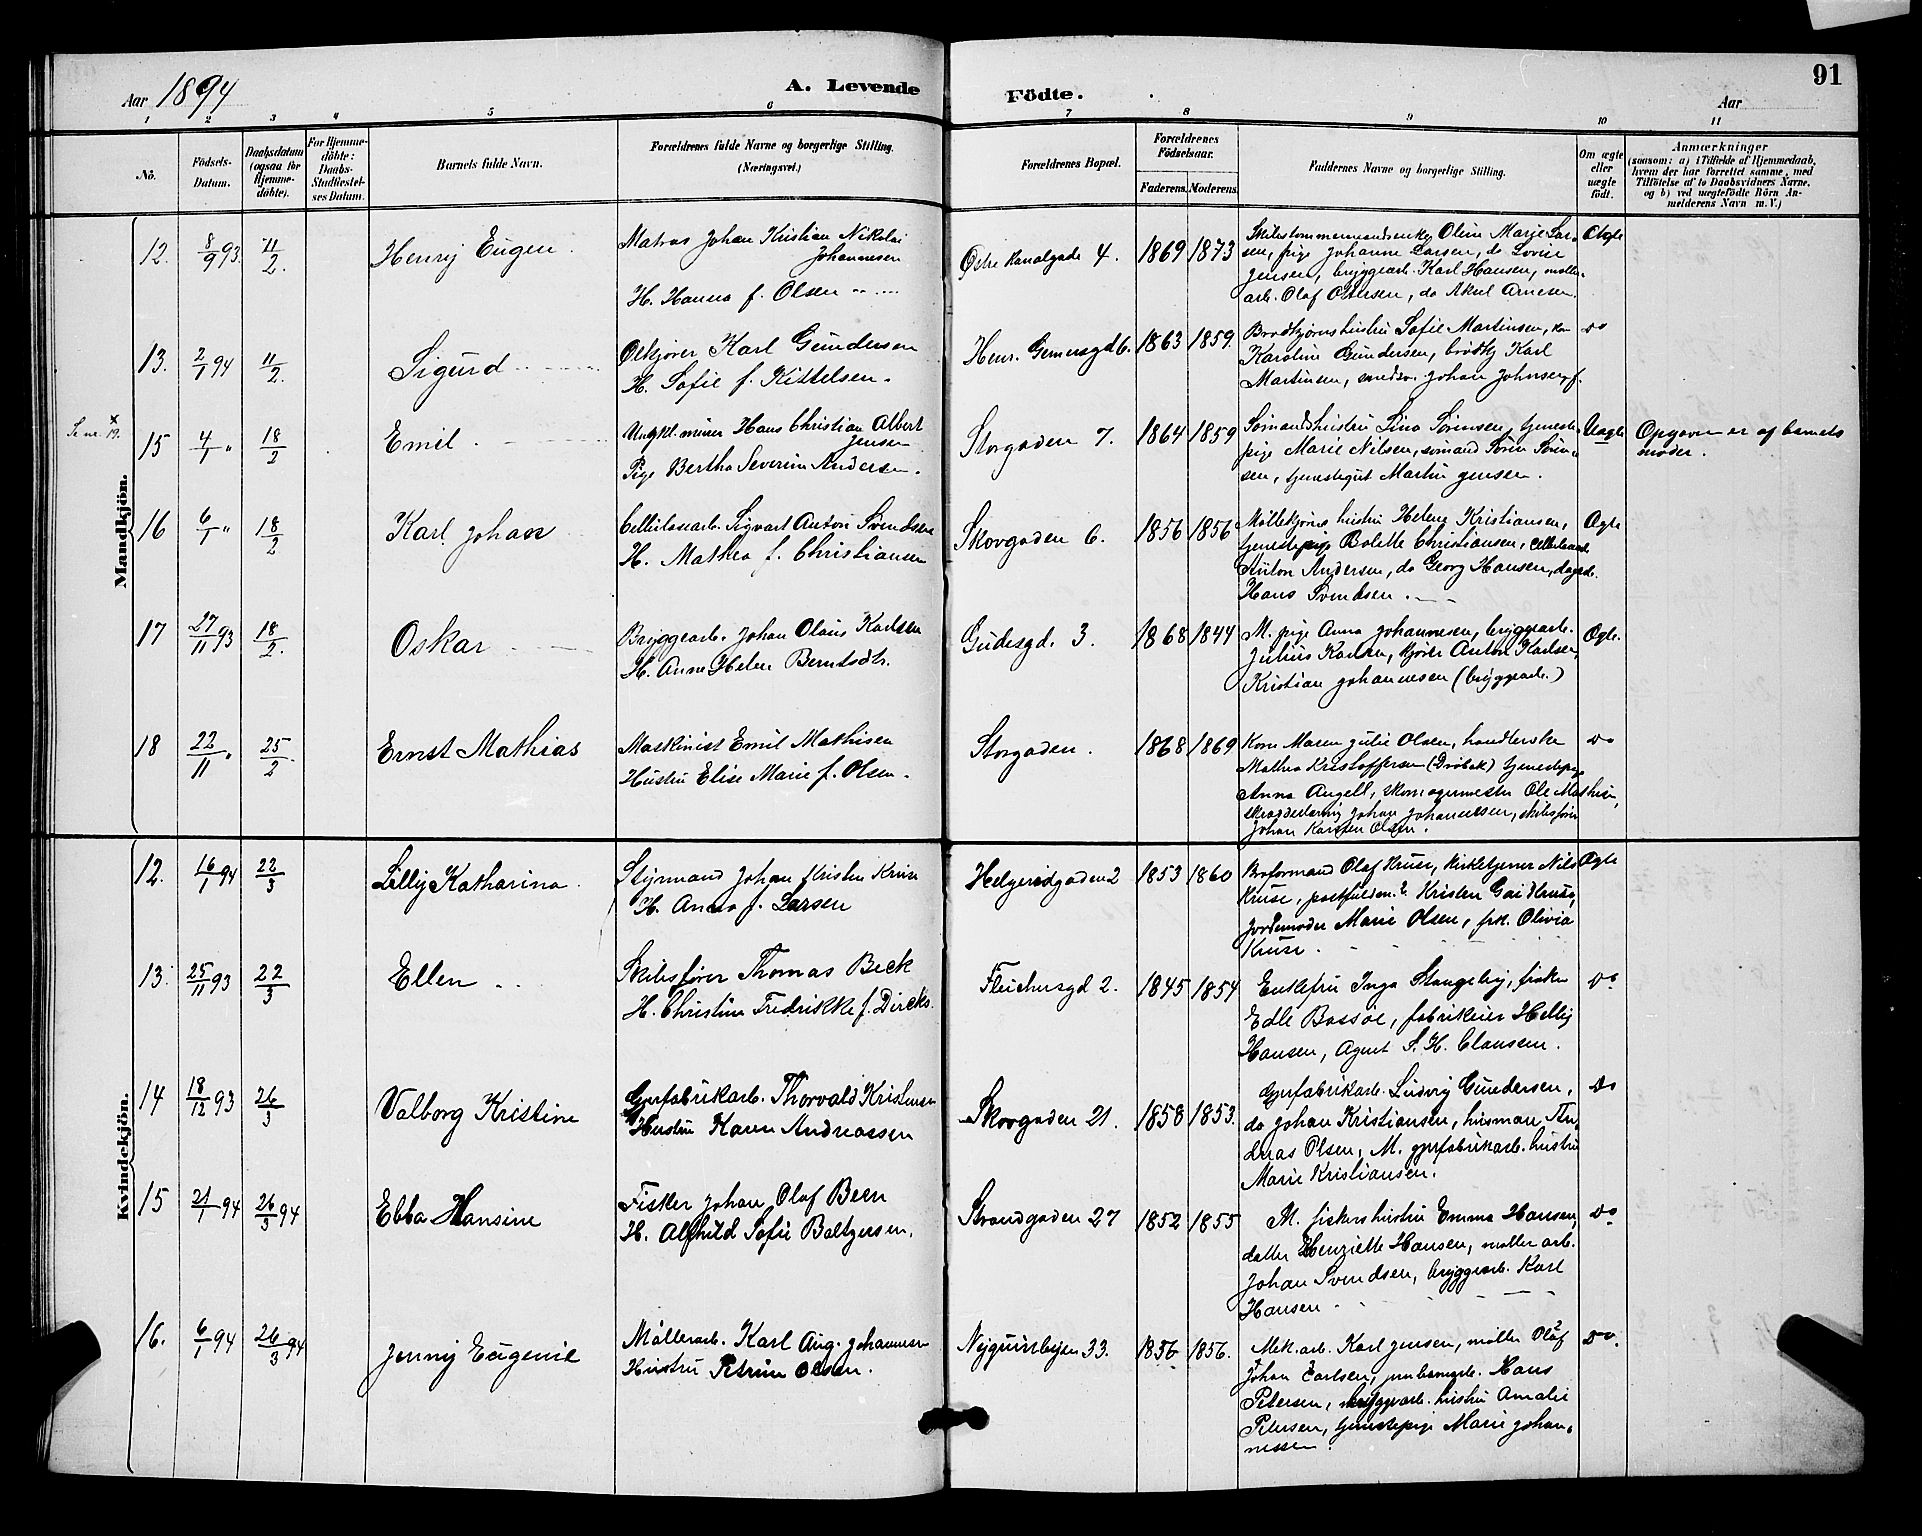 91
Aar 1894
A. Levende
Födte.
Aar
1 2 3 4 5 6 7 8 9 10 11
No.
Födsels-Datum.
Daabsdatum (ogsaa for Hjemme-döbte).
For Hjemme-döbte: Daabs-Stadfæstel-ses Datum.
Barnets fulde Navn.
Forældrenes fulde Navne og borgerlige Stilling.
(Næringsvei.)
Forældrenes Bopæl.
Forældrenes Födselsaar.
Faderens. Moderens.
Faddernes Navne og borgerlige Stilling.
Om ægte eller uægte födt.
Anmærkninger
(saasom: a) i Tilfælde af Hjemmedaab,
hvem der har forrettet samme, med
Tilföielse af to Daabsvidners Navne,
og b) ved uægtefödte Börn An-
melderens Navn m. V.)
Mandkjön.
12. 8/9 93. 11/2. Henrij Eugen. Matros Johan Kristian Nikolai
Johannesen
H. Hanna f. Olsen
Østre Kanalgade 4. 1869 1873
Oline Marie Lar-
sen, pige Johanne Larsen, do Lovise
Jensen, bryggearb. Karl Hansen, møller-
arb. Olaf Ottersen, do Aksel Arnesen. Ægte
13. 2/1 94 11/2. Sigurd Ølkjører Karl Gundersen
H. Sofie f. Kittelsen.
Henr. Gernersgd 6. 1863 1859.
Brødkjørers hustru Sofie Martinsen,
Karoline Gundersen, brødkj Karl
Martinsen, Johan Johnsen, f. do
Se nr. 19.
15 4/1 " 18/2 Emil. Hans Christian Albert
Jensen
Pige Bertha Severine Andersen.
Storgaden 7. 1864 1859
Sømandshustru Lina Sørensen, tjeneste-
pige Marie Nilsen, sømand Søren Søren-
sen, tjenestegut Martin Jensen. Uægte
Opgaven er af barnets
moder.
16 6/1 " 18/2 Karl Johan Cellulosearb. Sigvart Anton Svendsen
H. Mathea f. Christiansen
Skovgaden 6. 1856 1856
Møllekjørers hustru Helene Kristiansen,
tjenestepige Bolette Christiansen,
Anton Andersen, do Georg Hansen, dagarb.
Hans Svendsen. Ægte
17 27/11 93 18/2. Oskar Bryggearb. Johan Olaus Karlsen
H. Anne Helene Berntsdtr.
Gudesgd. 3. 1868 1844
M. pige Anna Johannesen, bryggearb.
Julius Karlsen, kjører Anton Karlsen,
Kristian Johannesen (bryggearb.) Ægte.
18 22/11 " 25/2 Ernst Mathias Maskinist Emil Mathisen
Hustru Elise Marie f. Olsen.
Storgaden. 1868 1869
Kone Maren Julie Olsen, handlerske
Mathea Kristoffersen (Drøbak) tjenestepige
Anna Angell, skomagermester Ole Mathisen,
skrædderlæring Johan Johannessen, skibsfører
Johan Karsten Olsen. do
Kvindekjön.
12. 16/1 94 22/3 Lillij Katharina. Styrmand Johan Kristen Kruse
H. Anna f. Larsen
Helgerødgaden 2 1853 1860
Broformand Olaf Kruse, kirketjener Nils
Kruse, postfuldm. Kristen
Jordemoder Marie Olsen, frk. Olivia
Kruse. Ægte
13. 25/11 93 22/3 Ellen Skibsfører Thomas Beck
H. Christine Fredrikke f. Dircks.
Fleichersgd 2. 1845 1854
Enkefru Inga Stangeby, frøken
Edle Bassøe, fabrikeier Hellij
Hansen, Agent S. H. Claussen. do
14 18/12 93 26/3 Valborg Kristine Gjærfabrikarb. Thorvald Kristensen
Hustru Karen Andreassen
Skovgaden 21. 1858 1853.
Gjærfabrikarb. Ludvig Gundersen,
do Johan Kristiansen, husmand An-
dreas Olsen, M. gjærfabrikarb. hustru
Marie Kristiansen. do
15 21/1 94 26/3 94 Ebba Hansine Fisker Johan Olaf Been
H. Alfhild Sofie Baltzersen.
Strandgaden 27 1852 1855
M. fiskers hustru Emma Hansen,
datter Henriette Hansen, møller arb.
Johan Svendsen, bryggearb. Karl
Hansen do
16. 6/1 94 26/3 94 Jennij Eugenie Møllerarb. Karl Aug. Johannesen
Hustru Petrine Olsen.
33. 1856 1856.
Mek. arb. Karl Jensen, møller Olaf
Johan Carlsen, jernbanearb. Hans
Petersen, bryggearb. hustru Amalie
Petersen, tjenestepige Marie Johan-
nessen. do.